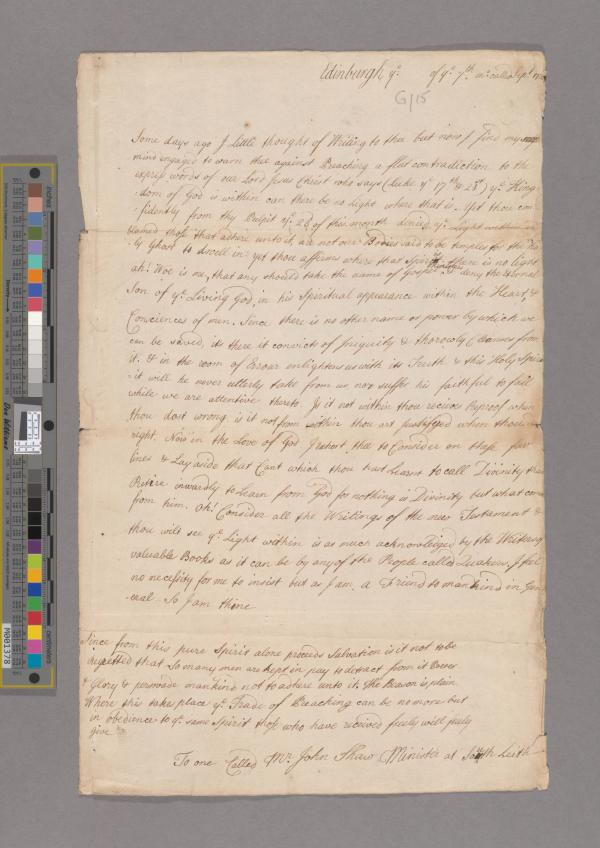 Edinburgh ye. of ye. 7th. mo. called Sept.
G/15
Some days ago I little thought of Writing to thee but now I find my
mind engaged to warn thee against Preaching a flat contradiction to the
express words of our Lord Jesus Christ who says (Luke ye 17th & 21) ye. King-
-dom of God is within can there be no Light where that is. Yet thou con
fidently from thy Pulpit ye. 28 of this month denied ye. Light within
blamed those that adhere unto it, are not our Bodies said to be temples for the Ho
ly Ghost to dwell in yet thou affirms where that Spirit is there is no light
ah! Woe is me, that any should take the name of Gospel & deny the eternal
Son of ye. Living God, in his Spiritual appearance within the Heart, &
Consciences of men. Since there is no other name or power by which we
can be saved, its there it convicts of Iniquity & thorowly Cleanses from
it. & in the room of Errour enlightens us with its Truth & this Holy Spirit
-it will he never utterly take from us nor suffer his faithful to fail
while we are attentive thereto. Is it not within thou recieves Reproof when
thou dost wrong, is it not from within thou art justifyed when thou
right. Now in the Love of God I exhort thee to Consider on these few
lines & Lay aside that Cant which thou hast Learnt to call Divinity
Retire inwardly to Learn from God for nothing is Divinity but what comes
from him. Oh! Consider all the Writings of the new Testament &
thou wilt see ye. Light within is as much acknowledged by the Writers
valuable Books as it can be by any of the People called Quakers, I feel
no necessity for me to insist but as I am a Friend to mankind in Gen
-eral - So I am thine
Since from this pure Spirit alone proceeds Salvation is it not to be
regretted that so many men are kept in pay to detract from its Power
& Glory & perswade mankind not to adhere unto it. The Reason is plain
Where this takes place ye. Trade of Preaching can be no more but
in obedience to ye. same Spirit those who have recieved freely will freely
give
To one Called Mr. John Shaw Minister at South Leith
inches
centimeters
Don Williams
M001378